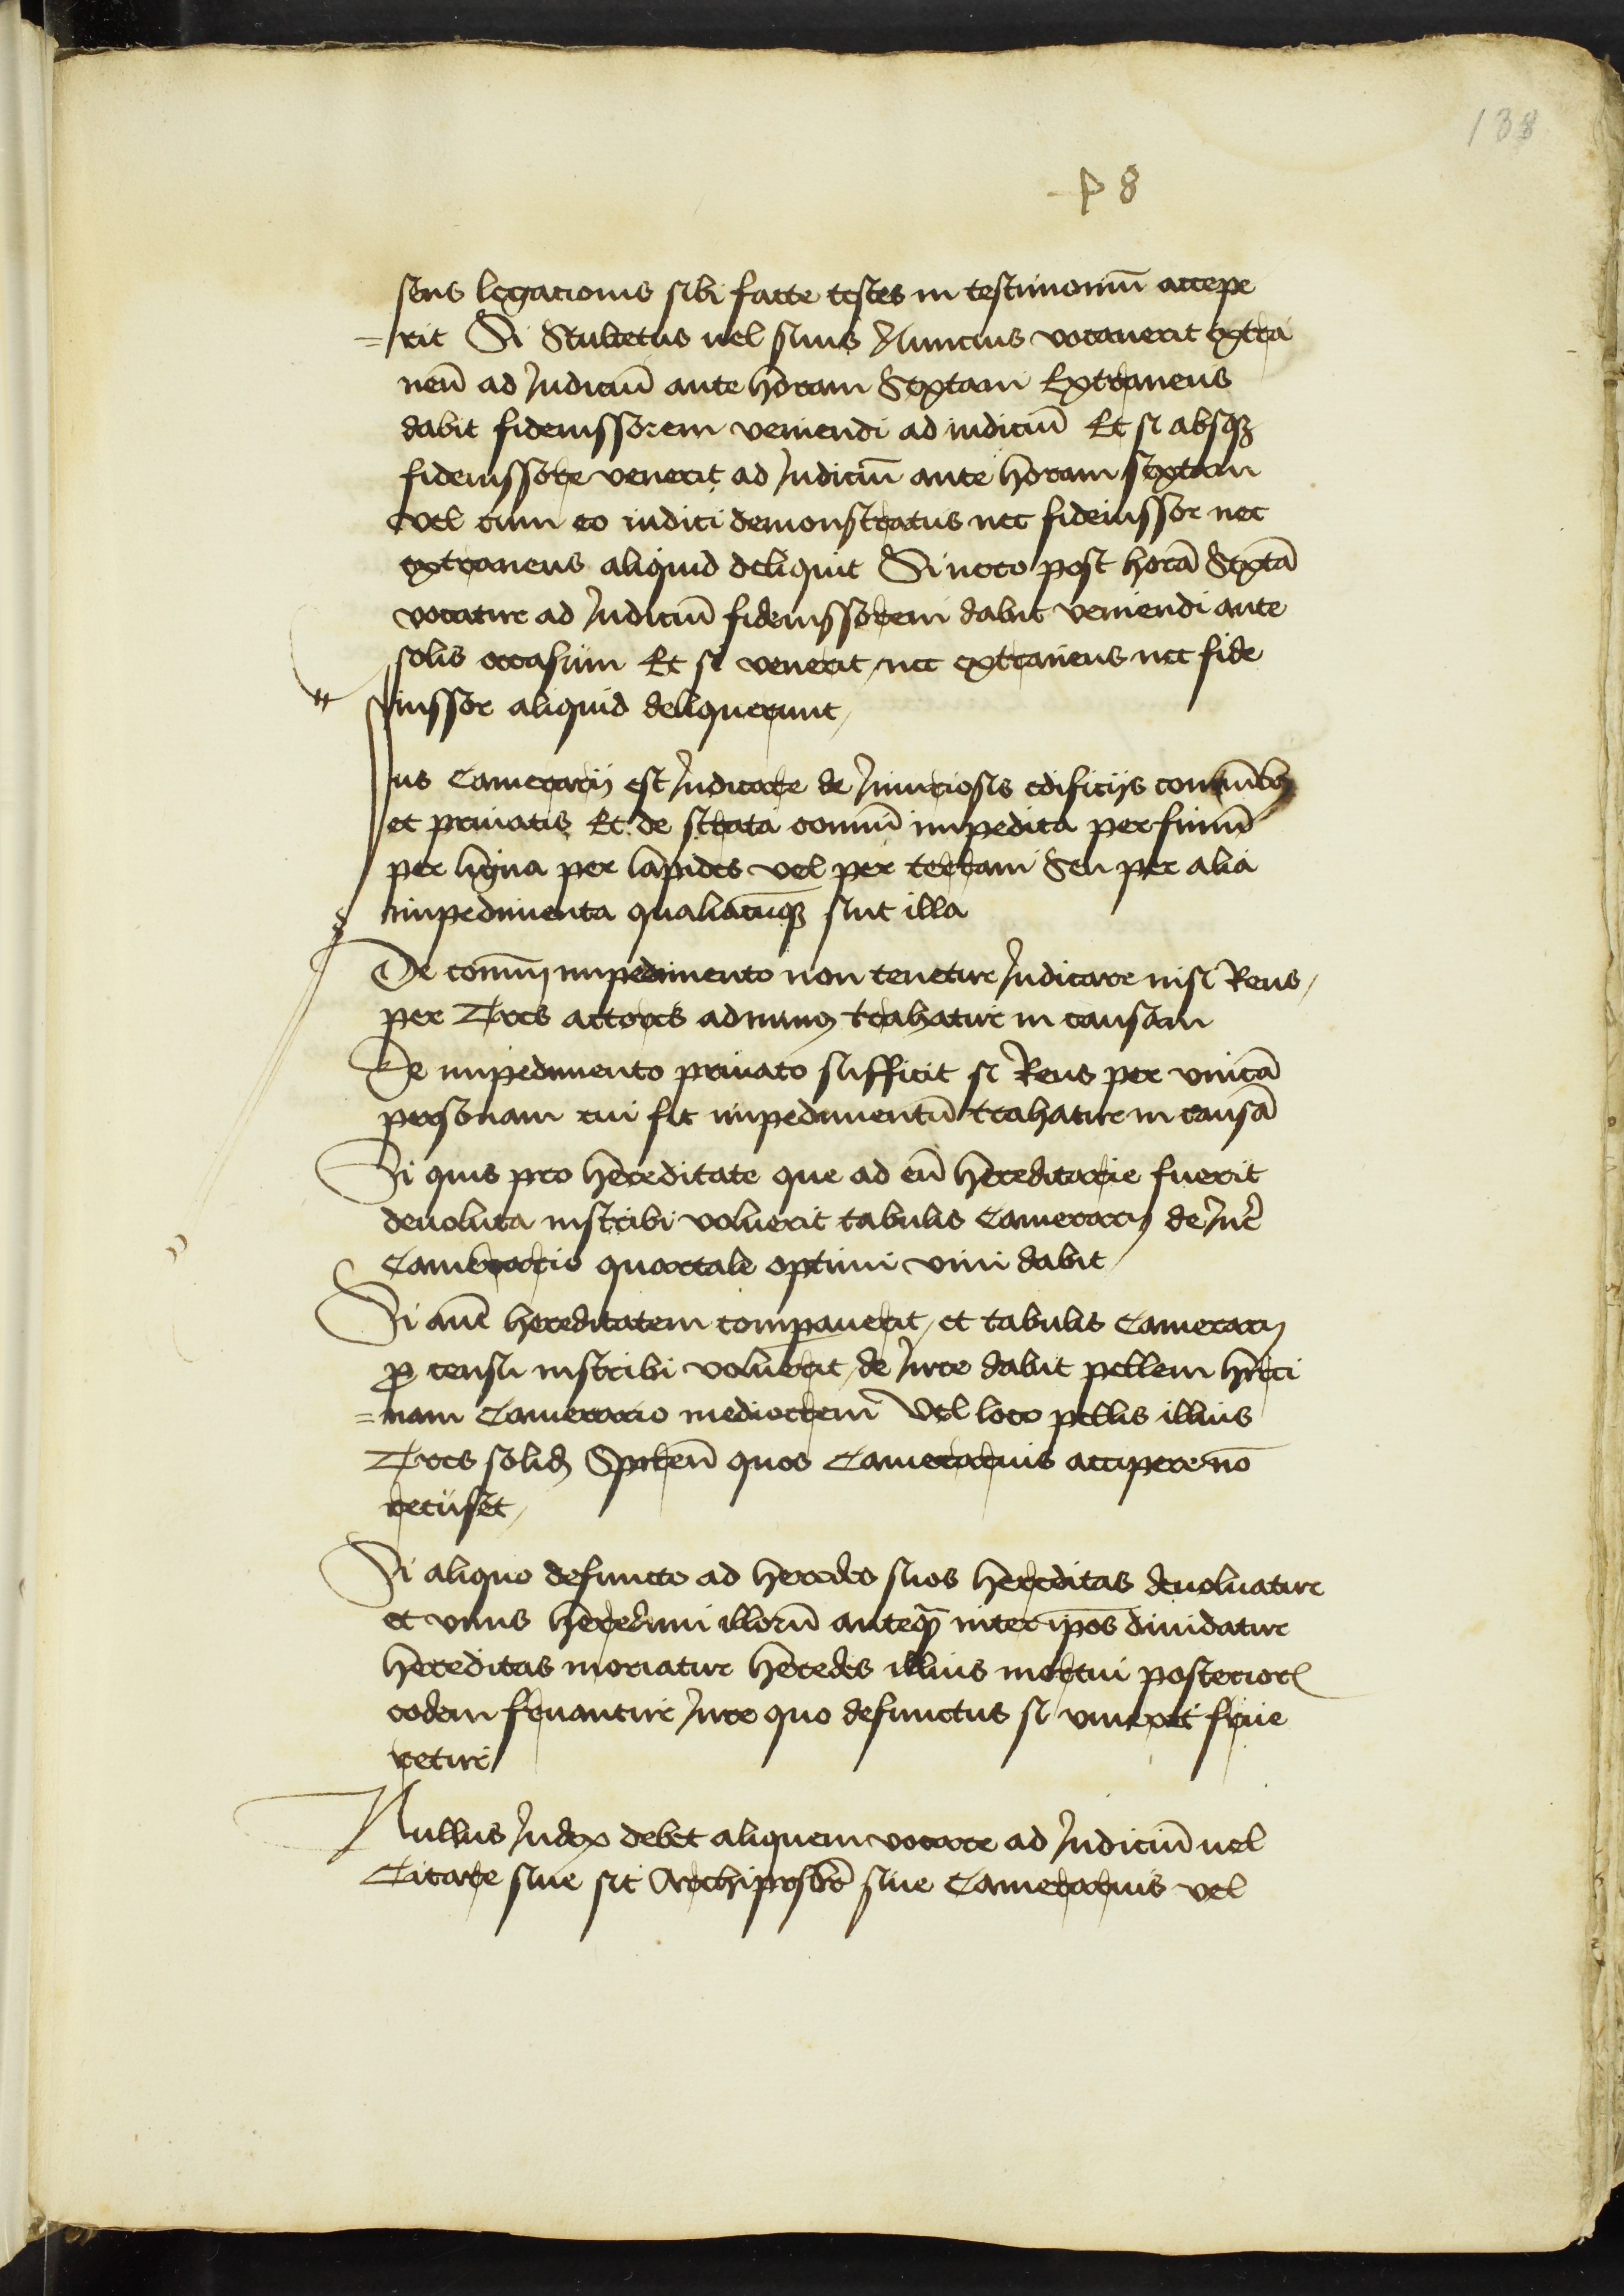 138
P 8
sens legacionis sibi facte testes in testimoniū accepe
=rit Si Scultetus uel suus Nuncius vocauerit extra
neū ad Judiciū ante horam Sextam Extraneus
dabit fideiussorem veniendi ad iudiciū Et si absqꝫ
fideiussore venerit ad Judiciū ante horam sextam
vel cum eo iudici demonstratus nec fideiussor nec
extraneus aliquid deliquit Si uero post horā Sextā
vocatur ad Judiciū fideiussorem dabit veniendi ante
solis occasum Et si venerit nec extraneus nec fide
iussor aliquid deliquerunt
Jus Camerarij est Judicare de Jniuriosis edificijs cōmunibꝫ
et priuatis Et de strata cōmuni impedita per fimū
per ligna per lapides vel per terram Seu per alia
impedimenta qualiacūqꝫ sint illa
De cōmuni impedimento non tenetur Judicare nisi Reus
per Tres actores ad minꝰ trahatur in causam
De impedimento priuato sufficit si Reus per vnicā
personam cui fit impedimentū trahatur in causā
Si quis pro hereditate que ad eū hereditarie fuerit
deuoluta inscribi voluerit tabulis Camerarij de Jur̄
Camerario quartale optimi vini dabit
Si autē hereditatem comparauerit et tabulis Camerarij
ꝓ censu inscribi voluerit de Jure dabit pellem hirci
=nam Camerario mediocrem Vel loco pellis illius
Tres solid quos Camerarius accipere nō
recuset
Si aliquo defuncto ad heredes suos hereditas deuoluatur
et vnus heredum illorū anteqꝫ inter ip̄os diuidatur
hereditas moriatur heredes illius mortui posteriores
eodem fruantur Jure quo defunctus si viueret frue
retur
Nullus Judex debet aliquem vocare ad Judiciū uel
Citare siue sit Archipresbr̄ siue Camerarius vel